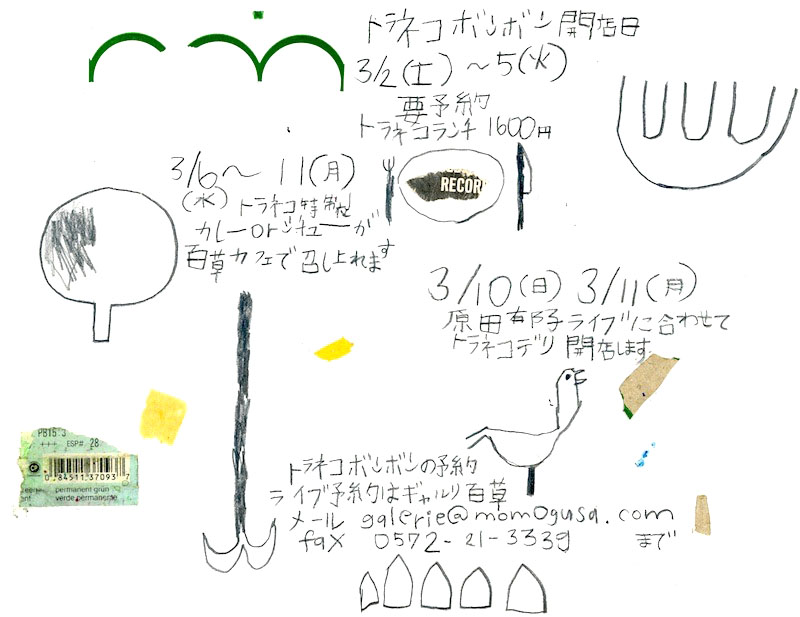 トラネコボンボン開店日
3/2(土)～5(火)
要予約
トラネコランチ 1600円
RECOR
3/6～11(月)
(水)トラネコ特製
カレーorシチューが
百草カフェで召し上れます
3/10(日) 3/11(月)
原田郁子ライブに合わせて
トラネコデリ 開店します
PB15:3
+++ ESP# 28
0 84511 37093 7
permanent grün
verde permanente
トラネコボンボンの予約
ライブ予約はギャルリ百草
メール galerie@momogusa.com
fax 0572-21-3339 まで